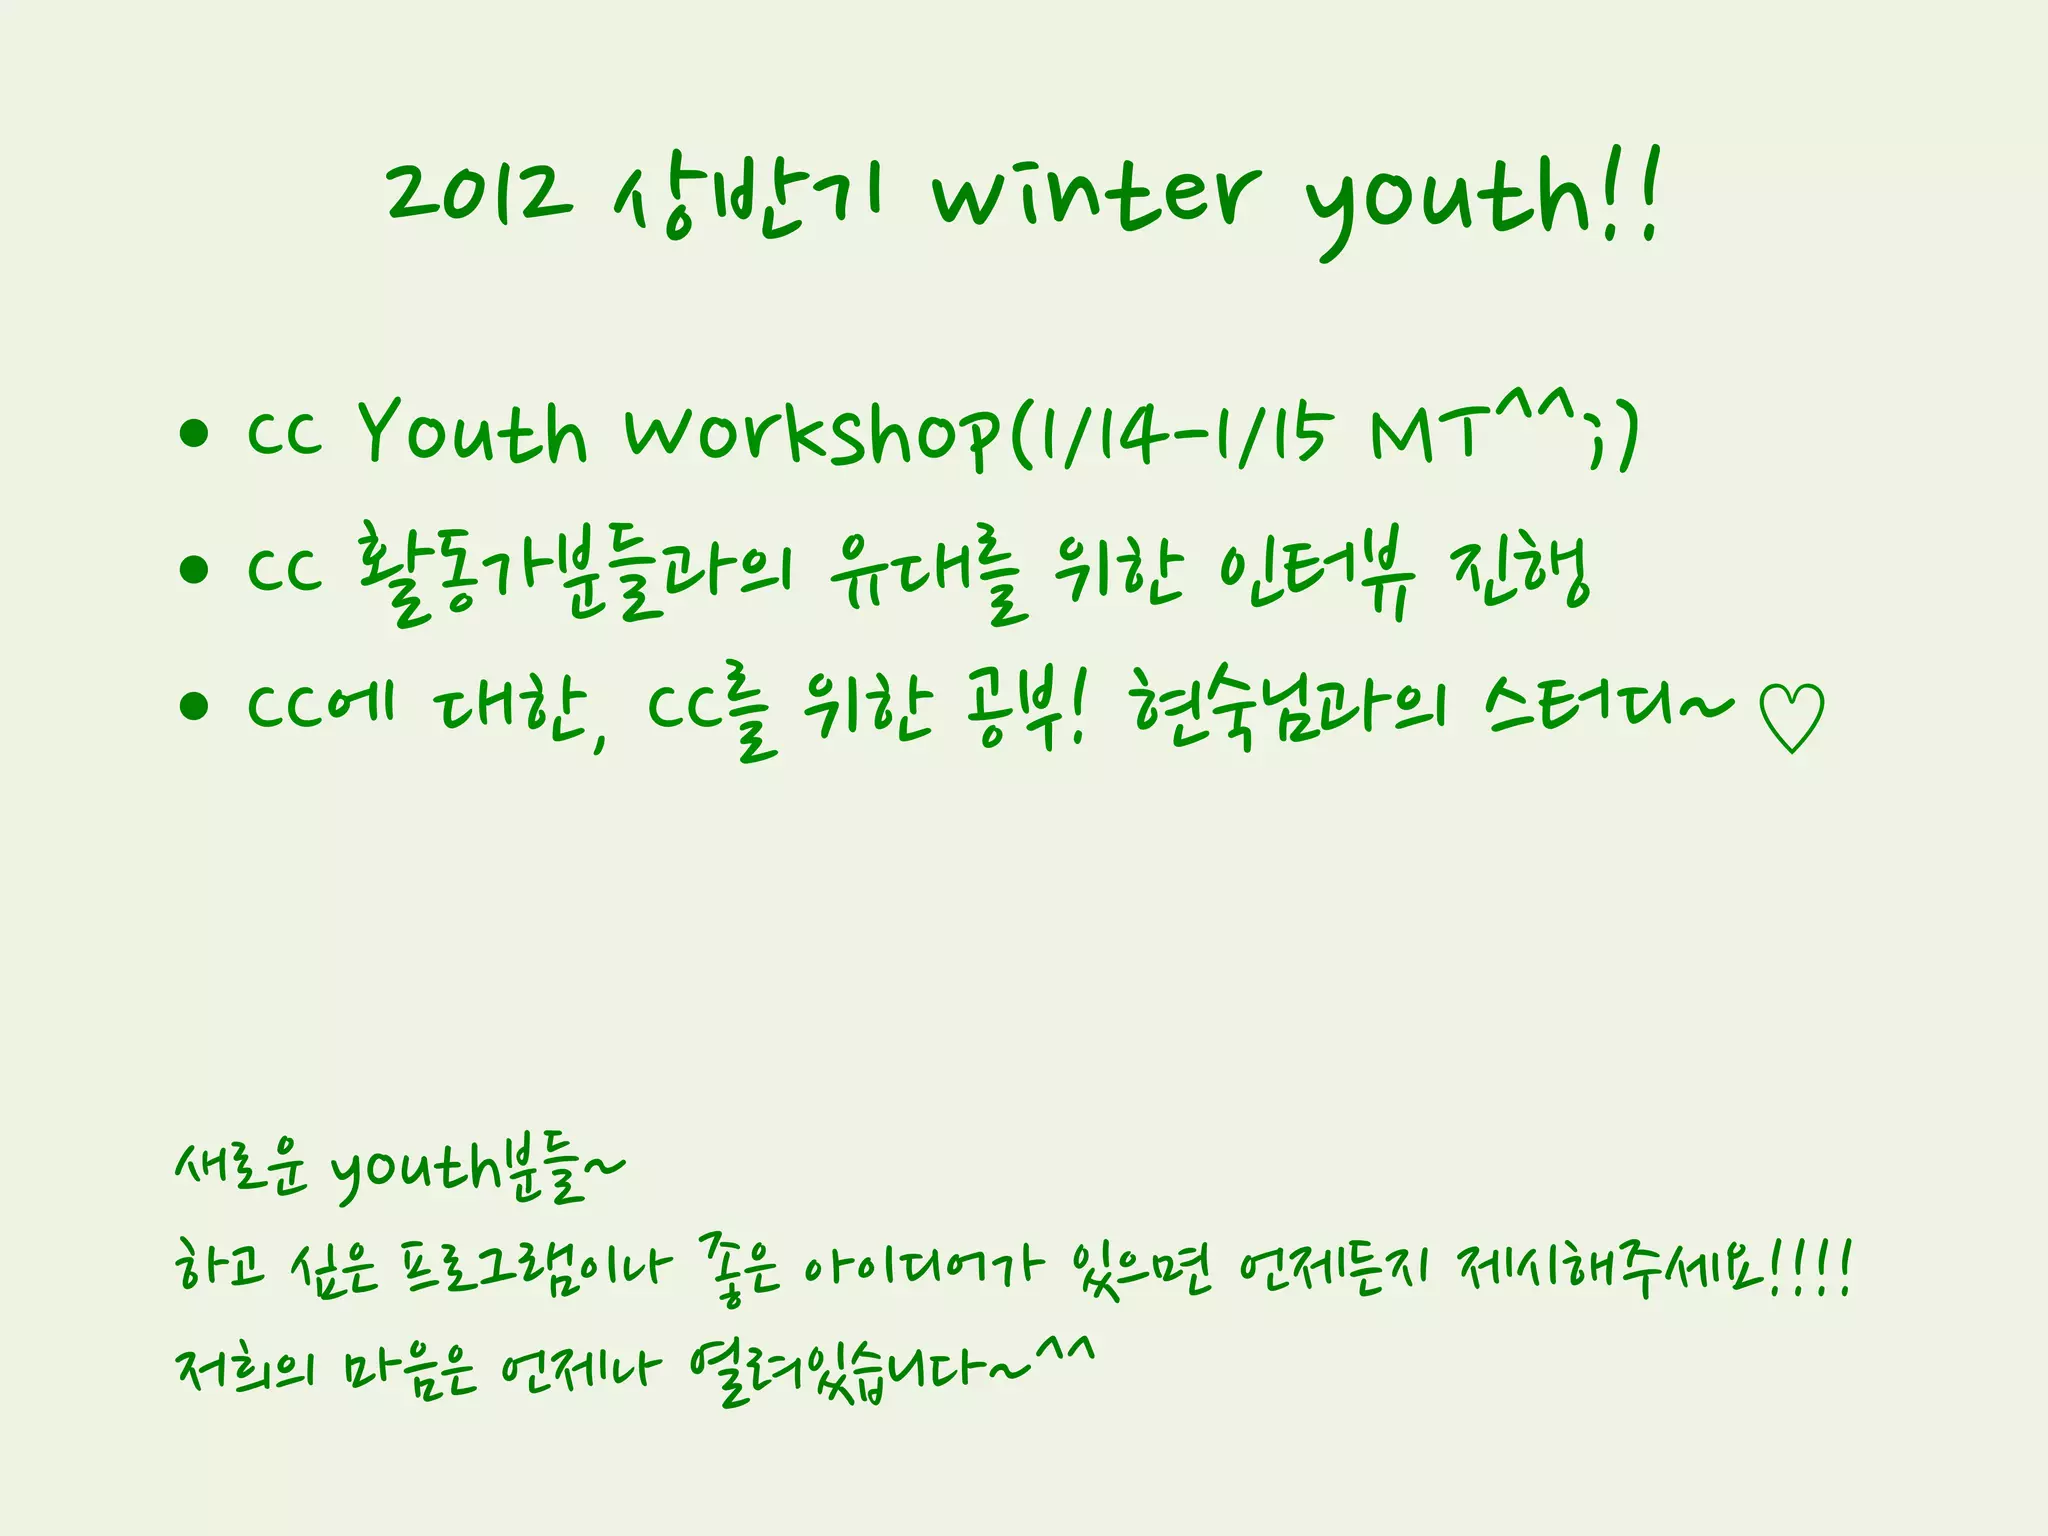 2012 상반기 winter youth!!
• CC Youth Workshop(1/14-1/15 MT^^;)
• CC 활동가분들과의 유대를 위한 인터뷰 진행
• CC에 대한, CC를 위한 공부! 현숙님과의 스터디~♡
새로운 youth분들~
하고 싶은 프로그램이나 좋은 아이디어가 있으면 언제든지 제시해주세요!!!!
저희의 마음은 언제나 열려있습니다~^^